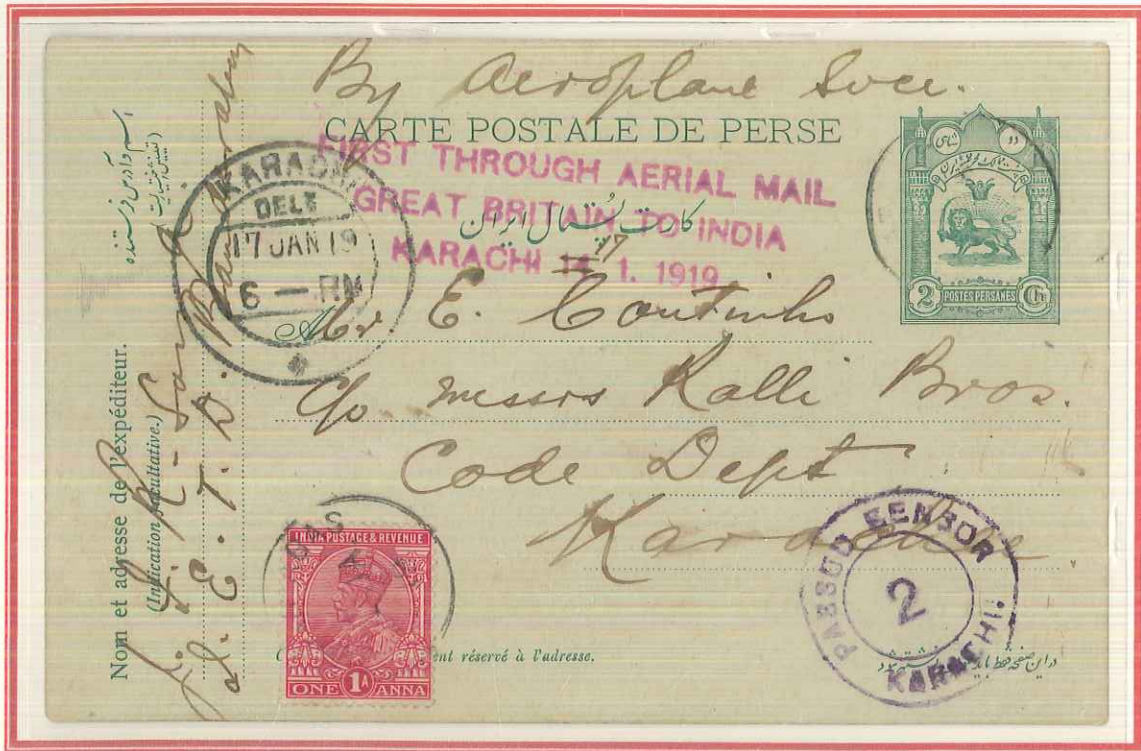 By Aeroplane Svce.
CARTE POSTALE DE PERSE
FIRST THROUGH AERIAL MAIL
GREAT BRITAIN TO INDIA
KARACHI 14 17 1. 1919
کارت پستال ایران
KARACHI
DELY
17 JAN 19
6 — PM
دو
شاهی
2 POSTES PERSANES Ch
Mr E. Coutinho
C/o messrs Ralli Bros.
Code Dept
Karachi
Nom et adresse de l'expéditeur.
(Indication facultative.)
I. E. T. D.
INDIA POSTAGE & REVENUE
ONE 1A ANNA
ent réservé à l'adresse.
PASSUD EENSOR
2
KARACHI.